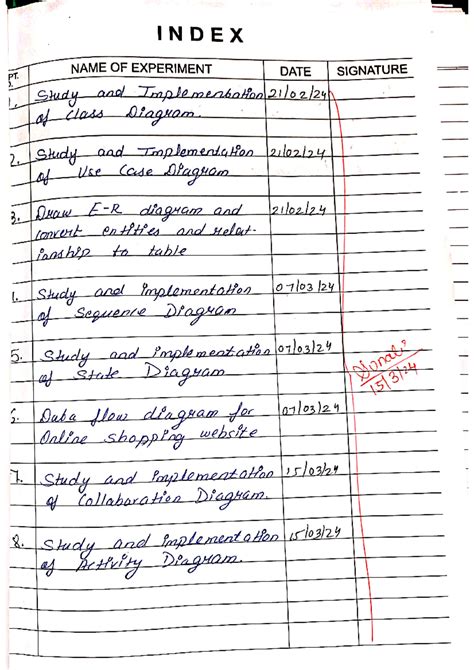 INDEX
NAME OF EXPERIMENT DATE SIGNATURE
1. Study and Implementation 21/02/24
of Class Diagram.
2. Study and Implementation 21/02/24
of Use Case Diagram
3. Draw E-R diagram and 21/02/24
convert entities and relat-
ionship to table
Study and implementation 07/03/24
of Sequence Diagram
5. Study and implementation 07/03/24
of State Diagram
15/3/24
Data flow diagram for 07/03/24
Online shopping website
7. Study and implementation 15/03/24
of Collaboration Diagram.
8. Study and implementation 15/03/24
of Activity Diagram.